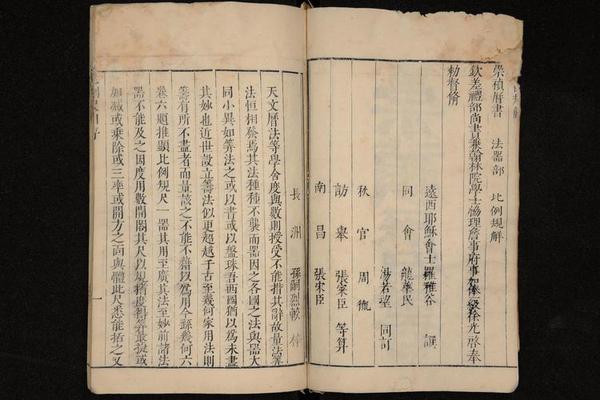 崇禎曆書　法器部　比例規解
欽差禮部尚書兼翰林院學士協理詹事府事加俸一級徐光啓奉
勅督脩
遠西耶穌會士羅雅谷　譔
同會　龍華民
湯若望　同訂
秋官　周胤
訪舉　張寀臣　等算
南昌　張寀臣
長洲　孫嗣烈　較梓
天文曆法等學舍度與數則授受不能措其辭故量法算
法恒相發焉其法種種不襲而器因之各國之法與器大
同小異如筭法之或以書或以盤珠吾西國猶以為未盡
其妙也近世設立籌法似更超越千古至幾何家用法則
籌有所不盡者而量該之不能不藉以為用今繇幾何六
卷六題推顯比例規尺一器其用至廣其法至妙前諸法
器不能及之因度用數開闔其尺以規度得算最捷或
加減或乗除或三率或開方之面與體此尺悉能括之又
一